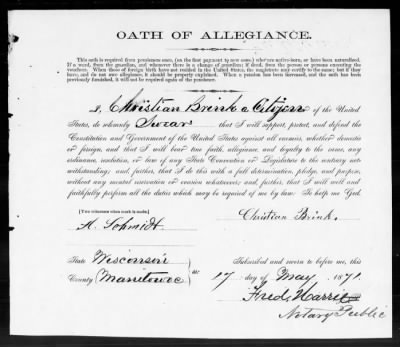 OATH OF ALLEGIANCE.
This oath is required from pensioners once, (on the first payment to new ones,) who are native-born, or have been naturalized.
If a ward, from the guardian, and whenever there is a change of guardian; if dead, from the person or persons executing the
vouchers. When those of foreign birth have not resided in the United States, the magistrate may certify to the same; but if they
have, and do not owe allegiance, it should be properly explained. When a pension has been increased, and the oath has been
previously furnished, it will not be required again of the pensioner.
I, Christian Brink a Citizen of the United
States, do solemnly Swear that I will support, protect, and defend the
Constitution and Government of the United States against all enemies, whether domestic
or foreign, and that I will bear true faith, allegiance, and loyalty to the same, any
ordinance, resolution, or law of any State Convention or Legislature to the contrary not-
withstanding; and further, that I do this with a full determination, pledge, and purpose,
without any mental reservation or evasion whatsoever; and further, that I will well and
faithfully perform all the duties which may be required of me by law. So help me God.
[Two witnesses when mark is made.]
Christian Brink.
A. Schmidt
State Wisconsin
County Manitowoc
ss:
Subscribed and sworn to before me, this
17 day of May 1871.
Fred. Harris
Notary Public